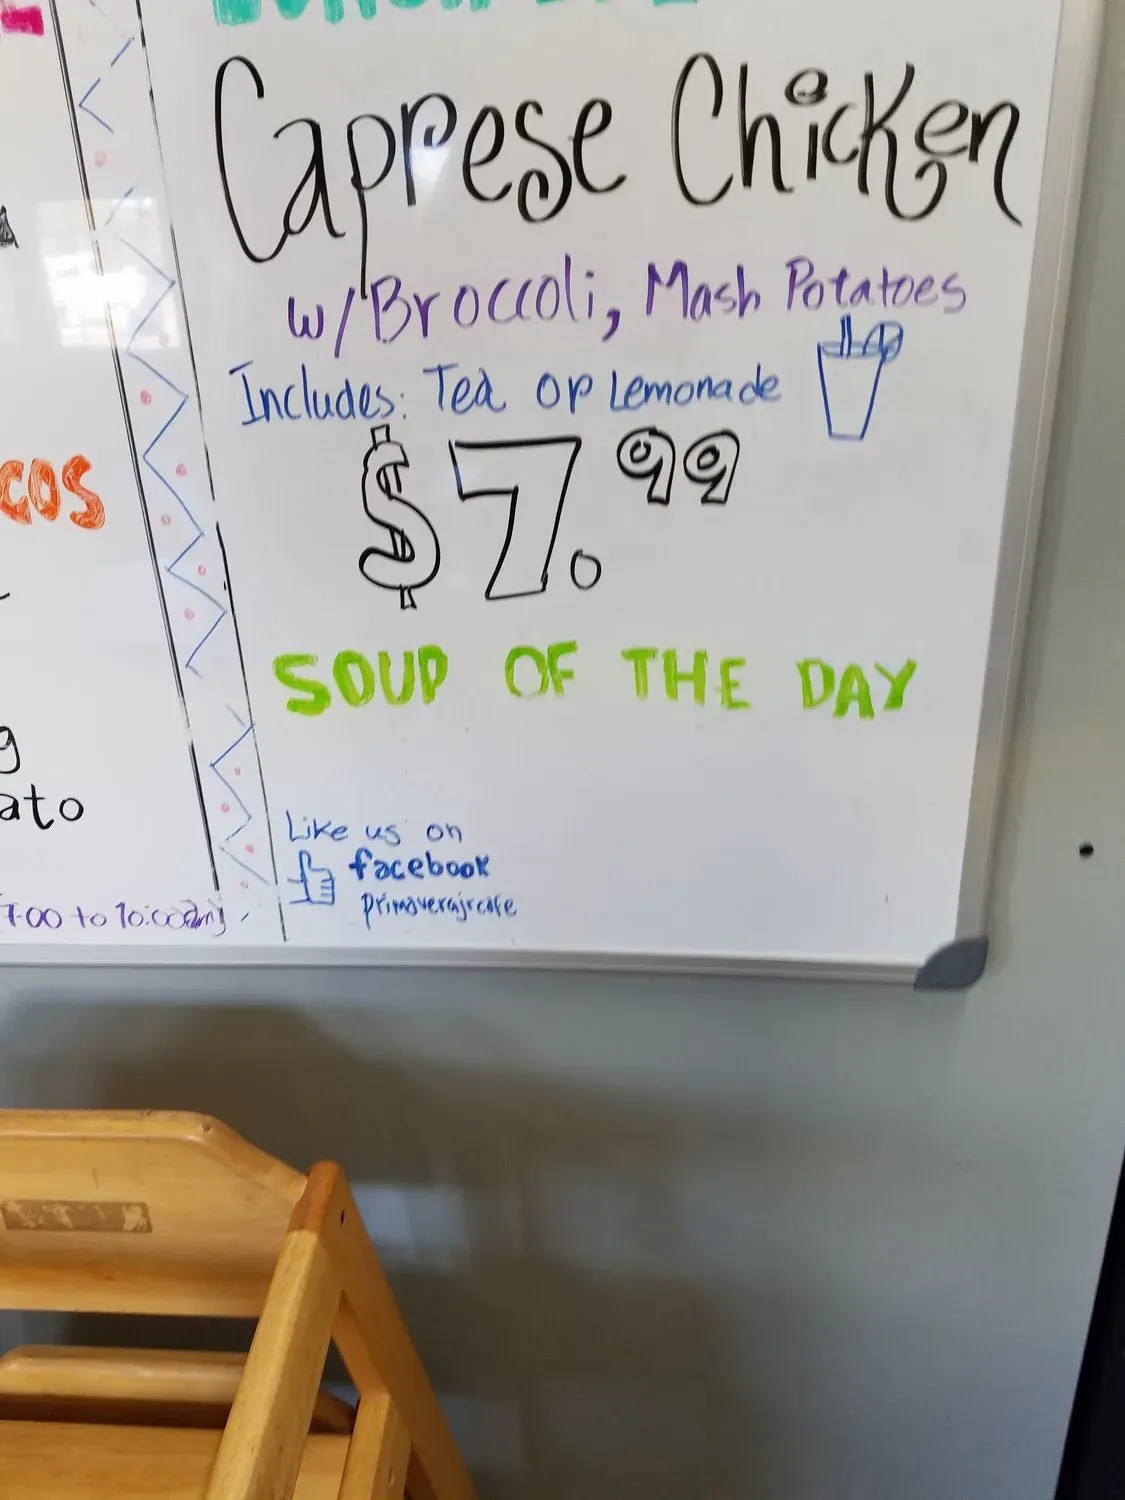 Caprese Chicken
w/Broccoli, Mash Potatoes
Includes: Tea or Lemonade
$7.99
SOUP OF THE DAY
Like us on
facebook
primaverajrcafe
cos
g
ato
7:00 to 10:00am)